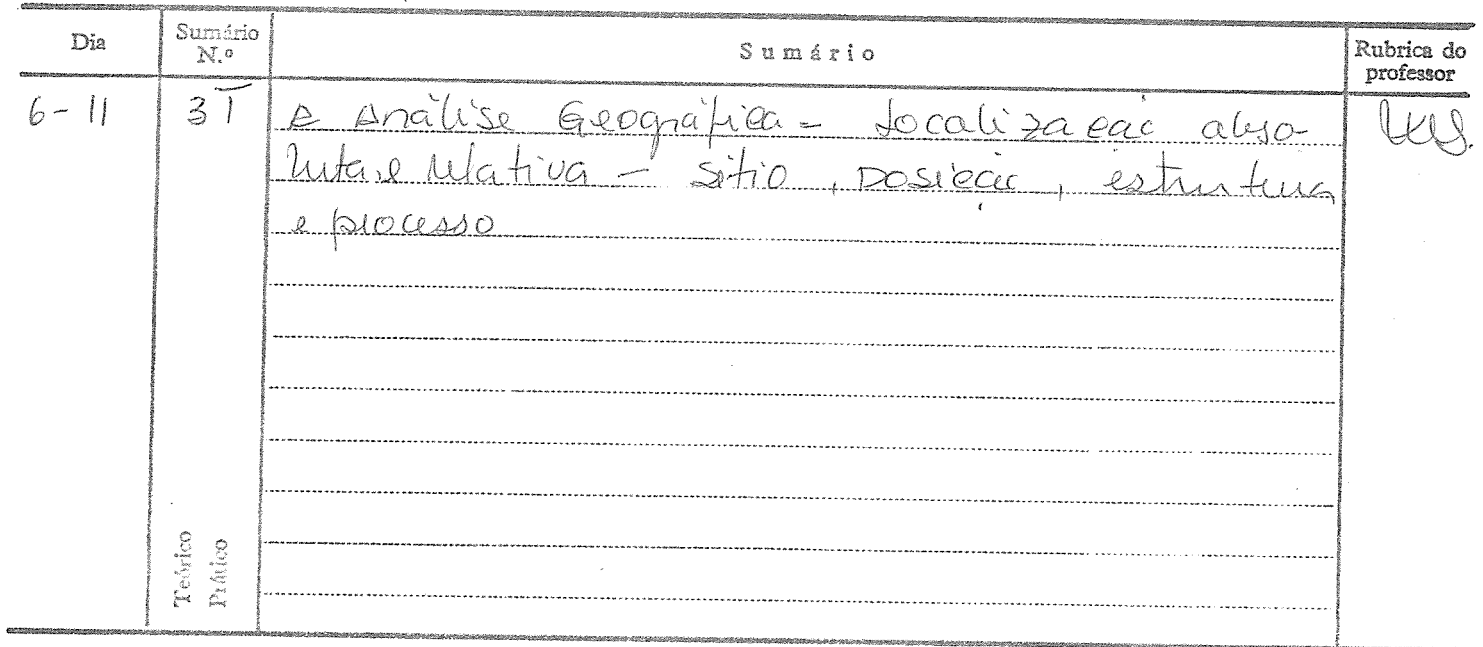 Dia Sumário N.º Sumário Rubrica do professor
6-11 3T A Análise Geográfica - Localização abso-
luta e relativa - sítio, posição, estrutura
e processo
Teórico
Prático